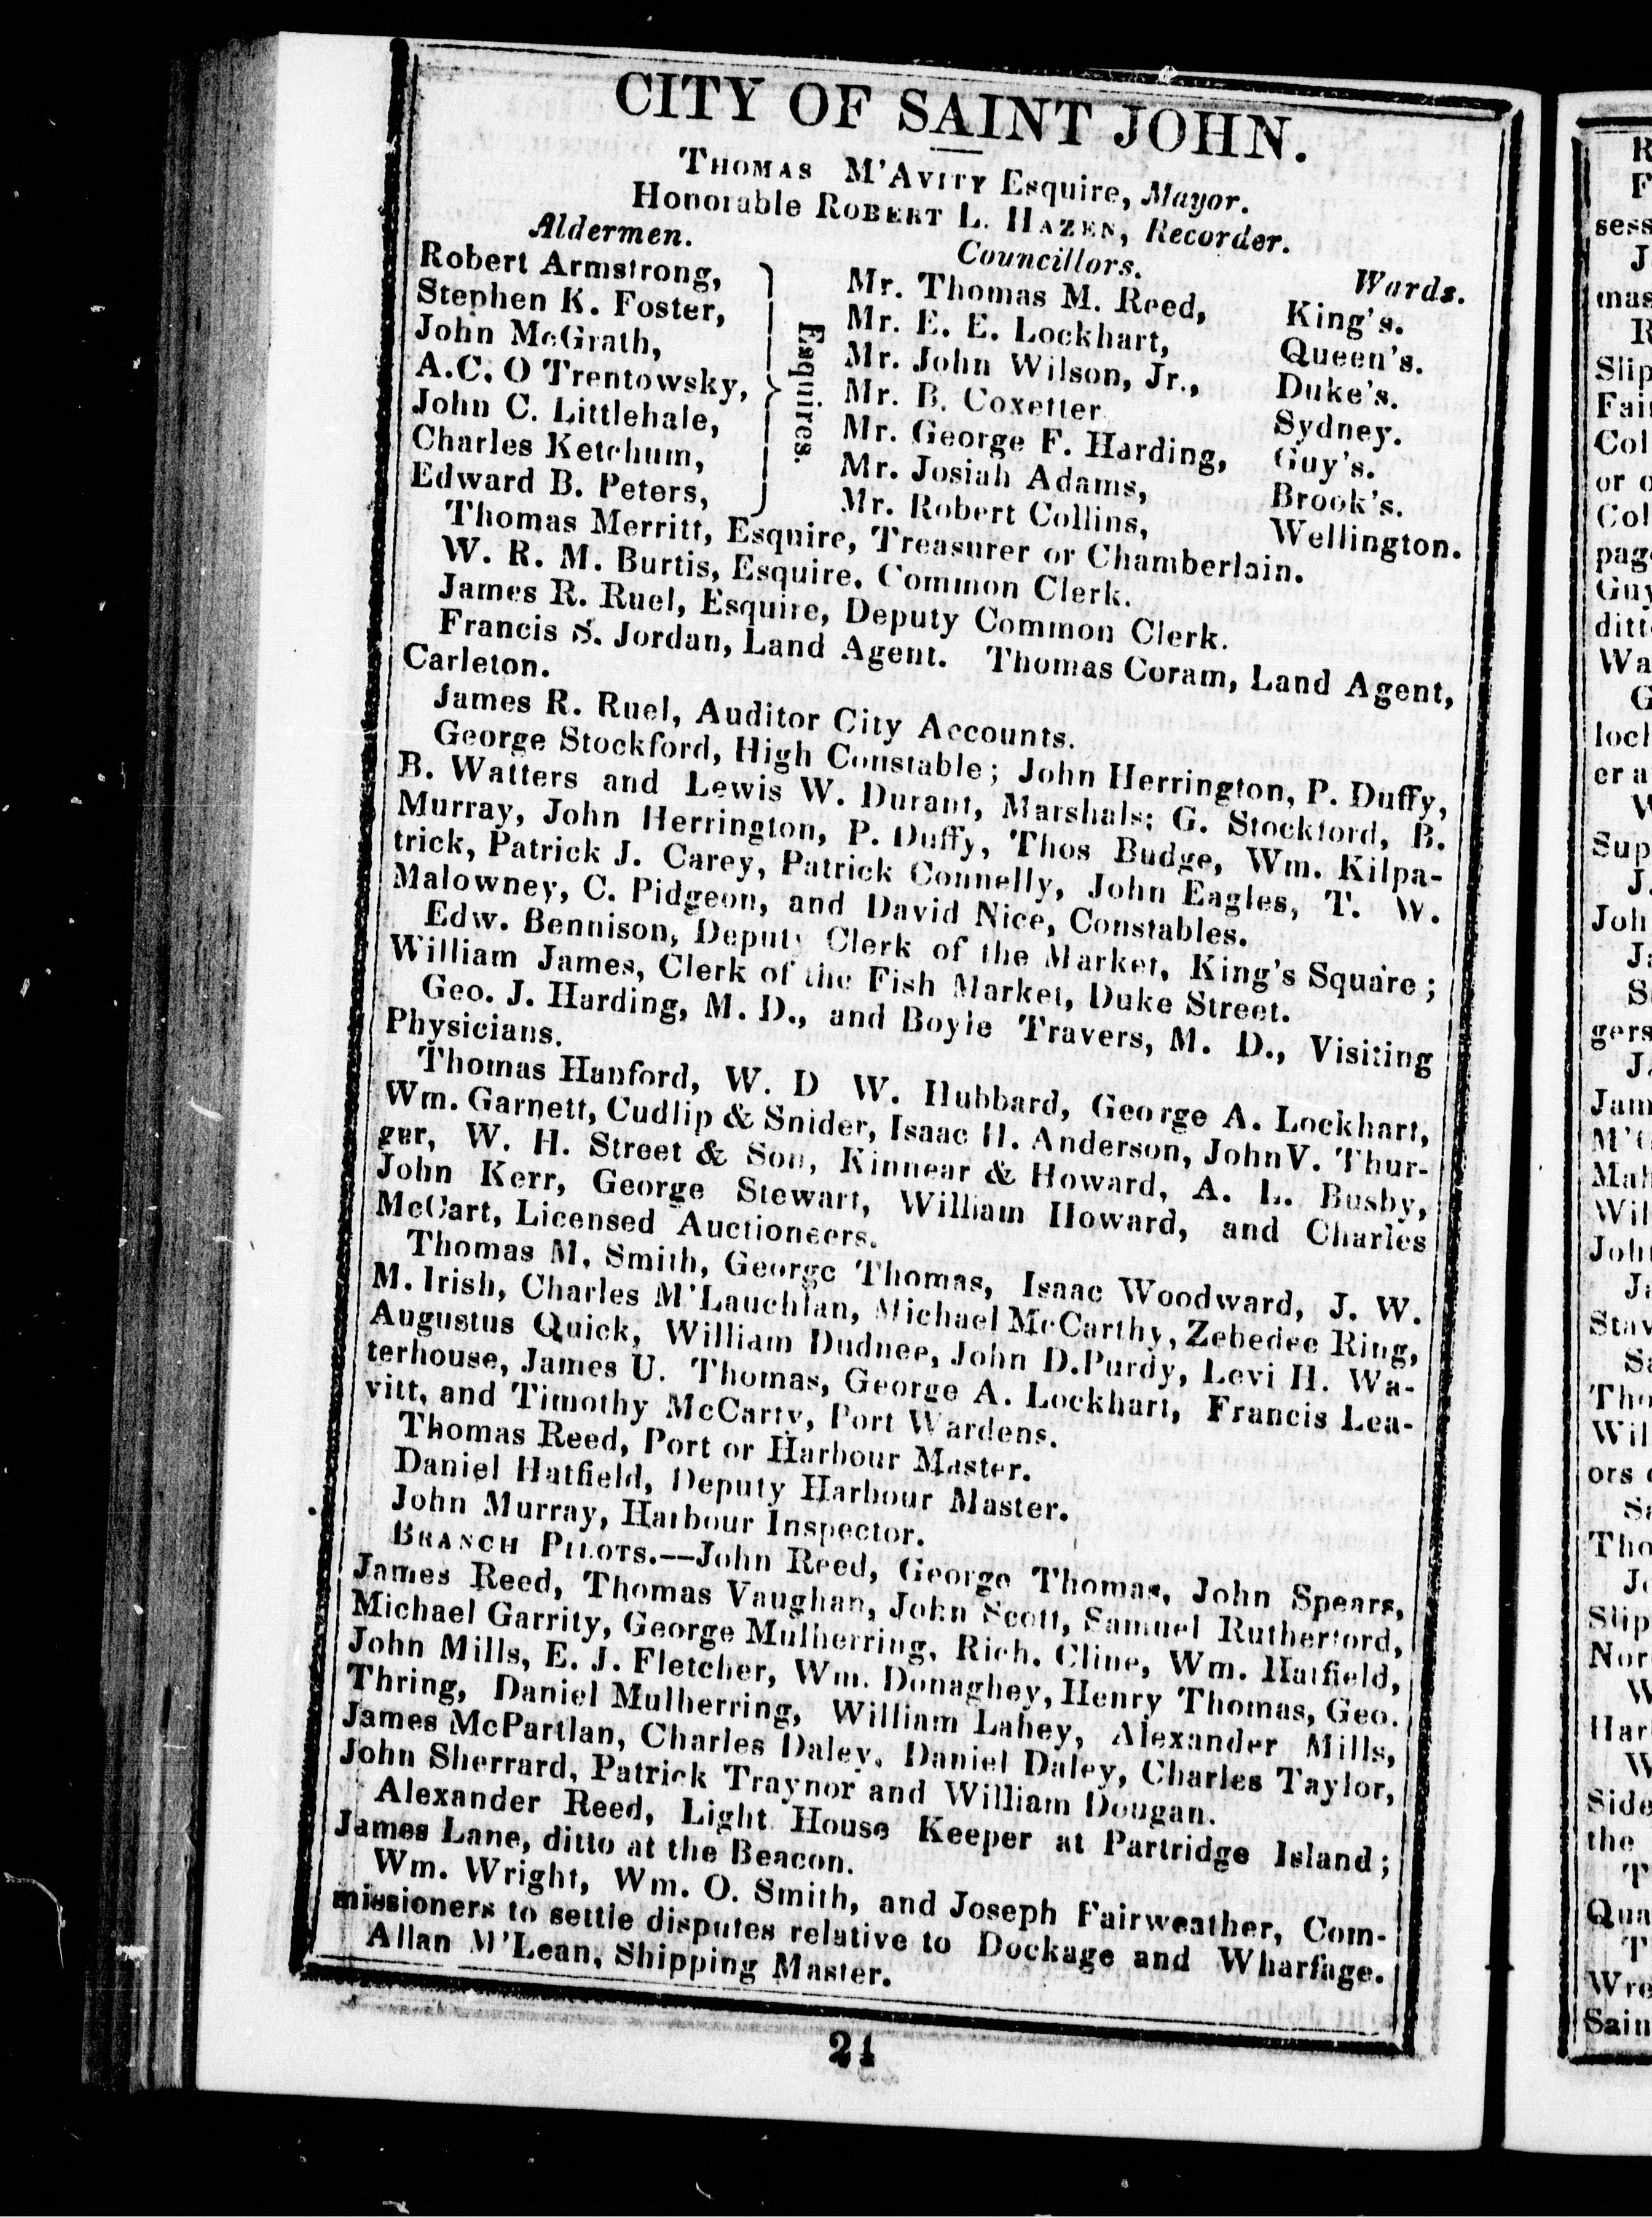 CITY OF SAINT JOHN.
THOMAS M'AVITY Esquire, Mayor.
Honorable ROBERT L. HAZEN, Recorder.
Aldermen. Councillors. Wards.
Robert Armstrong, Mr. Thomas M. Reed, King's.
Stephen K. Foster, Mr. E. E. Lockhart, Queen's.
John McGrath, Mr. John Wilson, Jr., Duke's.
A.C. O Trentowsky, Mr. B. Coxetter Sydney.
John C. Littlehale, Mr. George F. Harding, Guy's.
Charles Ketchum, Mr. Josiah Adams, Brook's.
Edward B. Peters, Mr. Robert Collins, Wellington.
Esquires.
Thomas Merritt, Esquire, Treasurer or Chamberlain.
W. R. M. Burtis, Esquire, Common Clerk.
James R. Ruel, Esquire, Deputy Common Clerk.
Francis S. Jordan, Land Agent. Thomas Coram, Land Agent,
Carleton.
James R. Ruel, Auditor City Accounts.
George Stockford, High Constable; John Herrington, P. Duffy,
B. Watters and Lewis W. Durant, Marshals; G. Stockford, B.
Murray, John Herrington, P. Duffy, Thos Budge, Wm. Kilpa-
trick, Patrick J. Carey, Patrick Connelly, John Eagles, T. W.
Malowney, C. Pidgeon, and David Nice, Constables.
Edw. Bennison, Deputy Clerk of the Market, King's Square;
William James, Clerk of the Fish Market, Duke Street.
Geo. J. Harding, M. D., and Boyle Travers, M. D., Visiting
Physicians.
Thomas Hanford, W. D W. Hubbard, George A. Lockhart,
Wm. Garnett, Cudlip & Snider, Isaac H. Anderson, John V. Thur-
gar, W. H. Street & Son, Kinnear & Howard, A. L. Busby,
John Kerr, George Stewart, William Howard, and Charles
McCart, Licensed Auctioneers.
Thomas M. Smith, George Thomas, Isaac Woodward, J. W.
M. Irish, Charles M'Lauchlan, Michael McCarthy, Zebedee Ring,
Augustus Quick, William Dudnee, John D. Purdy, Levi H. Wa-
terhouse, James U. Thomas, George A. Lockhart, Francis Lea-
vitt, and Timothy McCarty, Port Wardens.
Thomas Reed, Port or Harbour Master.
Daniel Hatfield, Deputy Harbour Master.
John Murray, Harbour Inspector.
BRANCH PILOTS.—John Reed, George Thomas, John Spears,
James Reed, Thomas Vaughan, John Scott, Samuel Rutherford,
Michael Garrity, George Mulherring, Rich. Cline, Wm. Hatfield,
John Mills, E. J. Fletcher, Wm. Donaghey, Henry Thomas, Geo.
Thring, Daniel Mulherring, William Lahey, Alexander Mills,
James McPartlan, Charles Daley, Daniel Daley, Charles Taylor,
John Sherrard, Patrick Traynor and William Dougan.
Alexander Reed, Light House Keeper at Partridge Island;
James Lane, ditto at the Beacon.
Wm. Wright, Wm. O. Smith, and Joseph Fairweather, Com-
missioners to settle disputes relative to Dockage and Wharfage.
Allan M'Lean, Shipping Master.
21